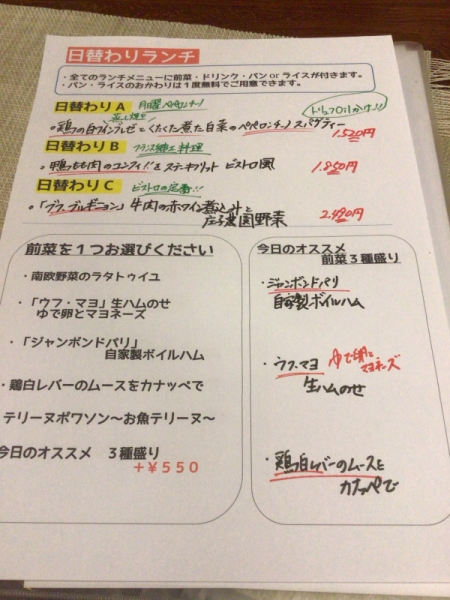 日替わりランチ
・全てのランチメニューに前菜・ドリンク・パンorライスが付きます。
・パン・ライスのおかわりは１度無料でご用意できます。
日替わりA
・鶏の白ワインブレゼとくたくた煮た白菜のペペロンチーノスパゲティー
1.520円
日替わりB フランス郷土料理
・鴨もも肉のコンフィ ビストロ風
1.850円
日替わりC ビストロの定番!!
・「ブフ・ブルギニョン」牛肉の赤ワイン煮込みと
農園野菜
2.490円
前菜を１つお選びください
・南欧野菜のラタトゥイユ
・「ウフ・マヨ」生ハムのせ
ゆで卵とマヨネーズ
・「ジャンボンドパリ」
自家製ボイルハム
・鶏白レバーのムースをカナッペで
テリーヌポワソン～お魚テリーヌ～
今日のオススメ　３種盛り
＋￥５５０
今日のオススメ
前菜３種盛り
・ジャンボンドパリ
自家製ボイルハム
・ウフ・マヨ ゆで卵と
マヨネーズ
生ハムのせ
・鶏白レバーのムースを
カナッペで